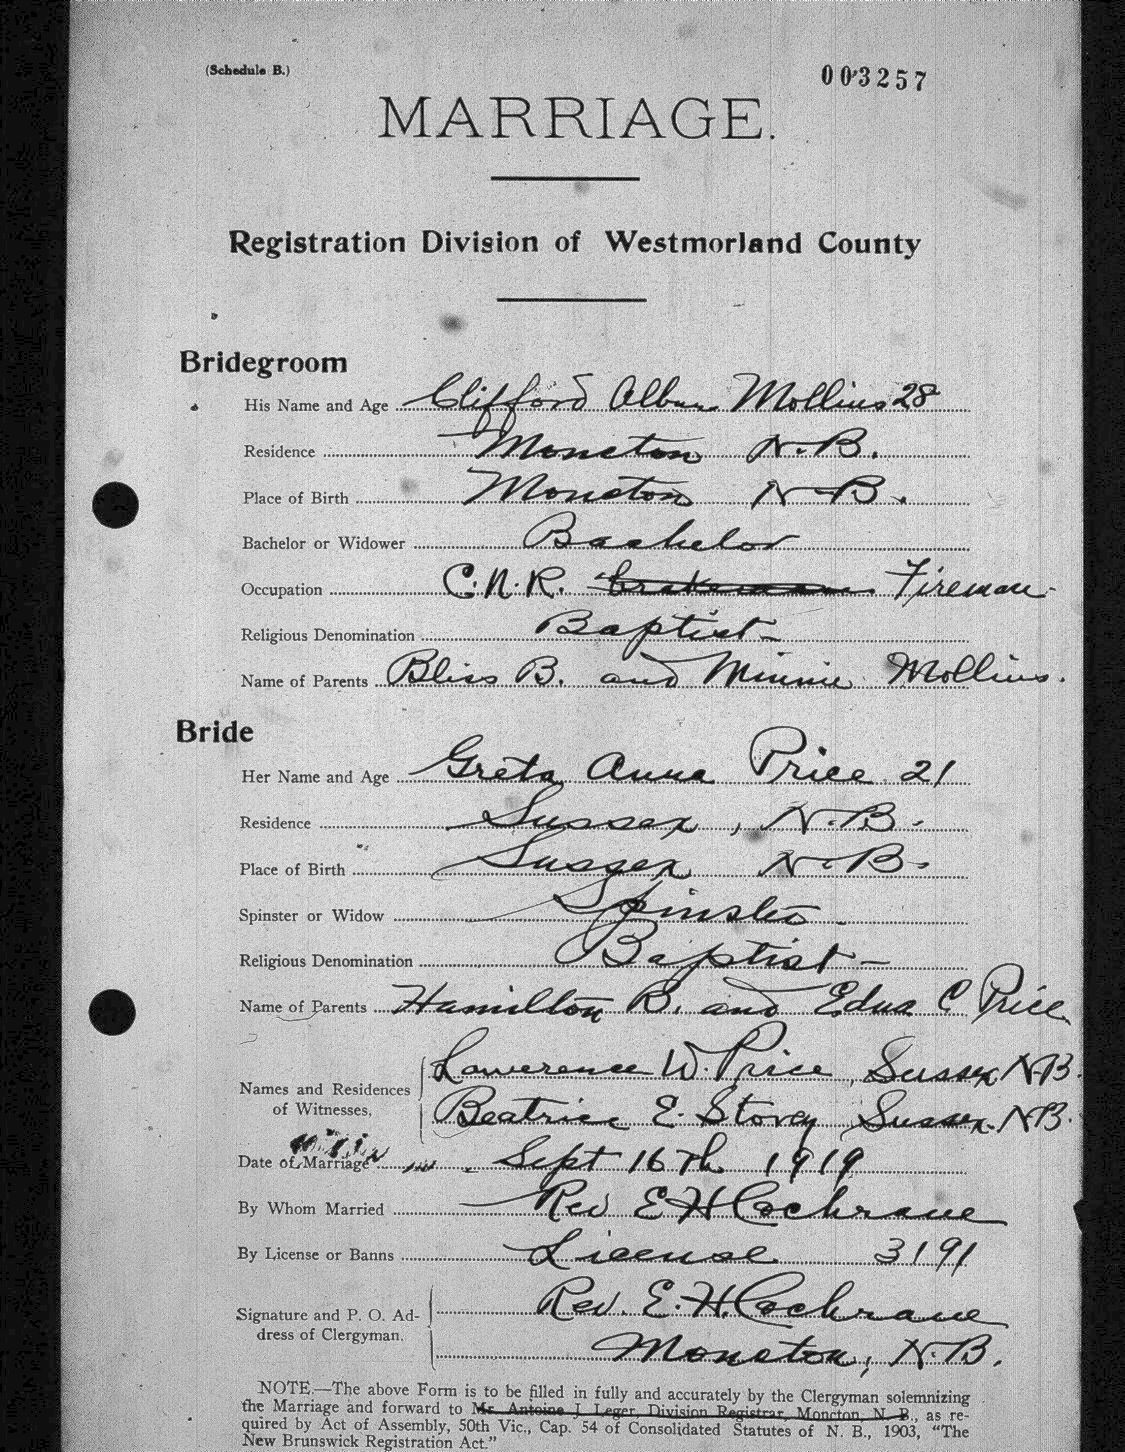 (Schedule B.)
003257
MARRIAGE.
Registration Division of Westmorland County
Bridegroom
His Name and Age Clifford Mollins 28
Residence Moncton N.B.
Place of Birth Moncton N-B.
Bachelor or Widower Bachelor
Occupation C.N.R. brakeman Fireman
Religious Denomination Baptist
Name of Parents Bliss B. and Minnie Mollins.
Bride
Her Name and Age Greta Anna Price 21
Residence Sussex, N.B.
Place of Birth Sussex N.B.
Spinster or Widow Spinster
Religious Denomination Baptist
Name of Parents Hamilton B. and Edna C Price
Names and Residences of Witnesses, Lawerence W. Price, Sussex N.B.
Beatrice E. Storey Sussex N.B.
Date of Marriage Sept 16th 1919
By Whom Married Rev E H Cochrane
By License or Banns License 3191
Signature and P. O. Ad- Rev. E. H. Cochrane
dress of Clergyman. Moncton, N.B.
NOTE.—The above Form is to be filled in fully and accurately by the Clergyman solemnizing
the Marriage and forward to Mr. Antoine J. Leger, Division Registrar, Moncton, N. B., as re-
quired by Act of Assembly, 50th Vic., Cap. 54 of Consolidated Statutes of N. B., 1903, "The
New Brunswick Registration Act."